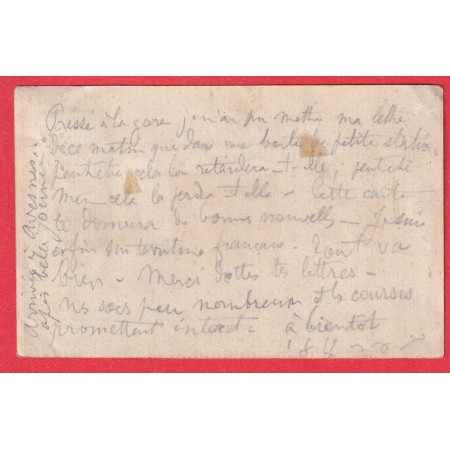 Pressé à la gare j'n'ai pu mettre ma lettre
de ce matin que dans une boite de petite station
Peut être cela la retardera-t-elle, peut être
même cela la perdra-t-elle - Cette carte
te donnera de bonnes nouvelles - Je suis
enfin sur territoire français. Tout va
bien - Merci de tes lettres -
nos sacs peu nombreux et les courses
promettent - à bientôt
Arrivée à Avesnes
après belle journée